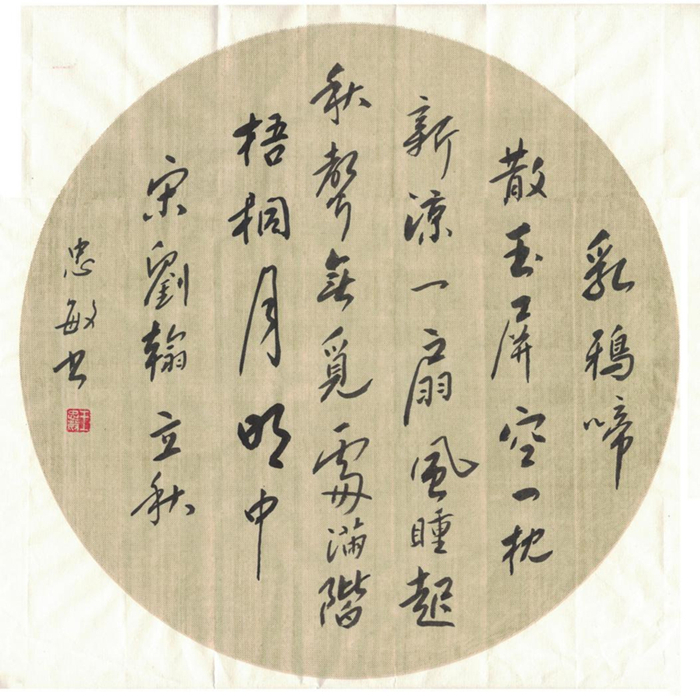 乳鴉啼
散玉屏空一枕
新涼一扇風睡起
秋聲無覓處滿階
梧桐月明中
宋劉翰立秋
忠敏书